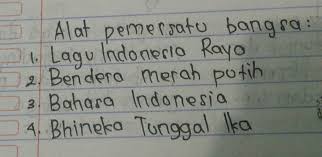 Alat pemersatu bangsa:
1. Lagu Indonesia Raya
2. Bendera merah putih
3. Bahasa Indonesia
4. Bhineka Tunggal Ika